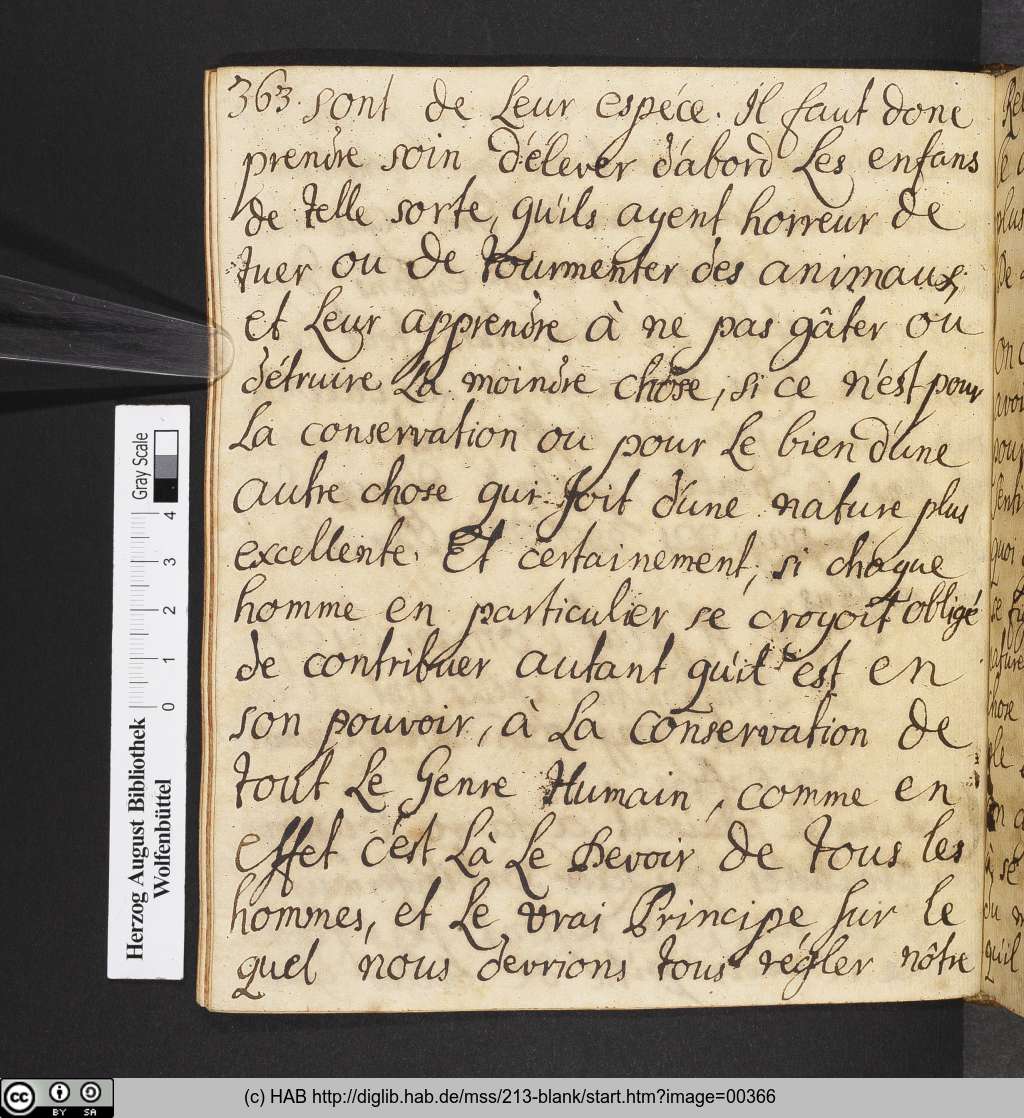 363. sont de Leur espéce. Il faut donc
prendre soin d'élever d'abord Les enfans
de telle sorte, qu'ils ayent horreur de
tuer ou de tourmenter des animaux,
et Leur apprendre à ne pas gâter ou
détruire La moindre chose, si ce n'est pour
La conservation ou pour Le bien d'une
autre chose qui soit d'une nature plus
excellente. Et certainement, si chaque
homme en particulier se croyoit obligé
de contribuer autant qu'il est en
son pouvoir, à La conservation de
tout Le Genre Humain, comme en
effet c'est Là Le Devoir de tous les
hommes, et Le vrai Principe sur le
quel nous devrions tous régler nôtre
Herzog August Bibliothek
Wolfenbüttel
0 1 2 3 4
Gray Scale
cc BY SA
(c) HAB http://diglib.hab.de/mss/213-blank/start.htm?image=00366